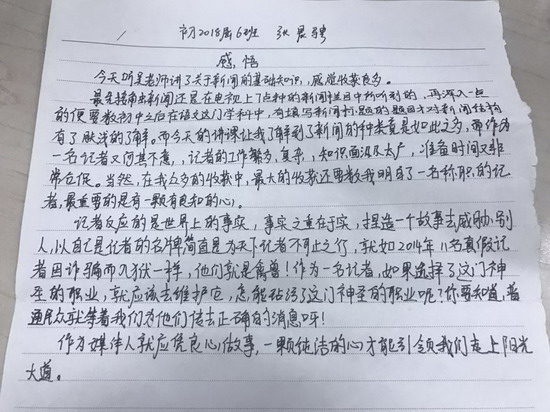 初2018届6班 张晨骋
感悟
今天听吴老师讲了关于新闻的基础知识,感觉收获良多。
最先接触出新闻还是在电视上了各种的新闻栏目中所听到的,再深入一点
的便要数初中之后在语文这门学科中,有填写新闻标题的题目才对新闻结构
有了肤浅的了解。而今天的讲课让我了解到了新闻的种类竟是如此之多,而作为
一名记者又何其不直,记者的工作繁多,复杂,知识面涉及太广,准备时间又非
常仓促。当然,在我众多的收获中,最大的收获还要数我明白了一名称职的记
者,最重要的是有一颗有良知的心。
记者反应的是世界上的事实,事实之重在于实,捏造一个故事去威胁别
人,以自己是记者的名牌简直是为天下记者不可止之行,就如2014年11名真假记
者因诈骗而入狱一样,他们就是禽兽!作为一名记者,如果选择了这门神
圣的职业,就应该去维护它,怎能玷污了这门神圣的职业呢?你要知道,普
通民众就等着我们为他们传去正确的消息呀!
作为媒体人就应凭良心做事,一颗纯洁的心才能引领我们走上阳光
大道。